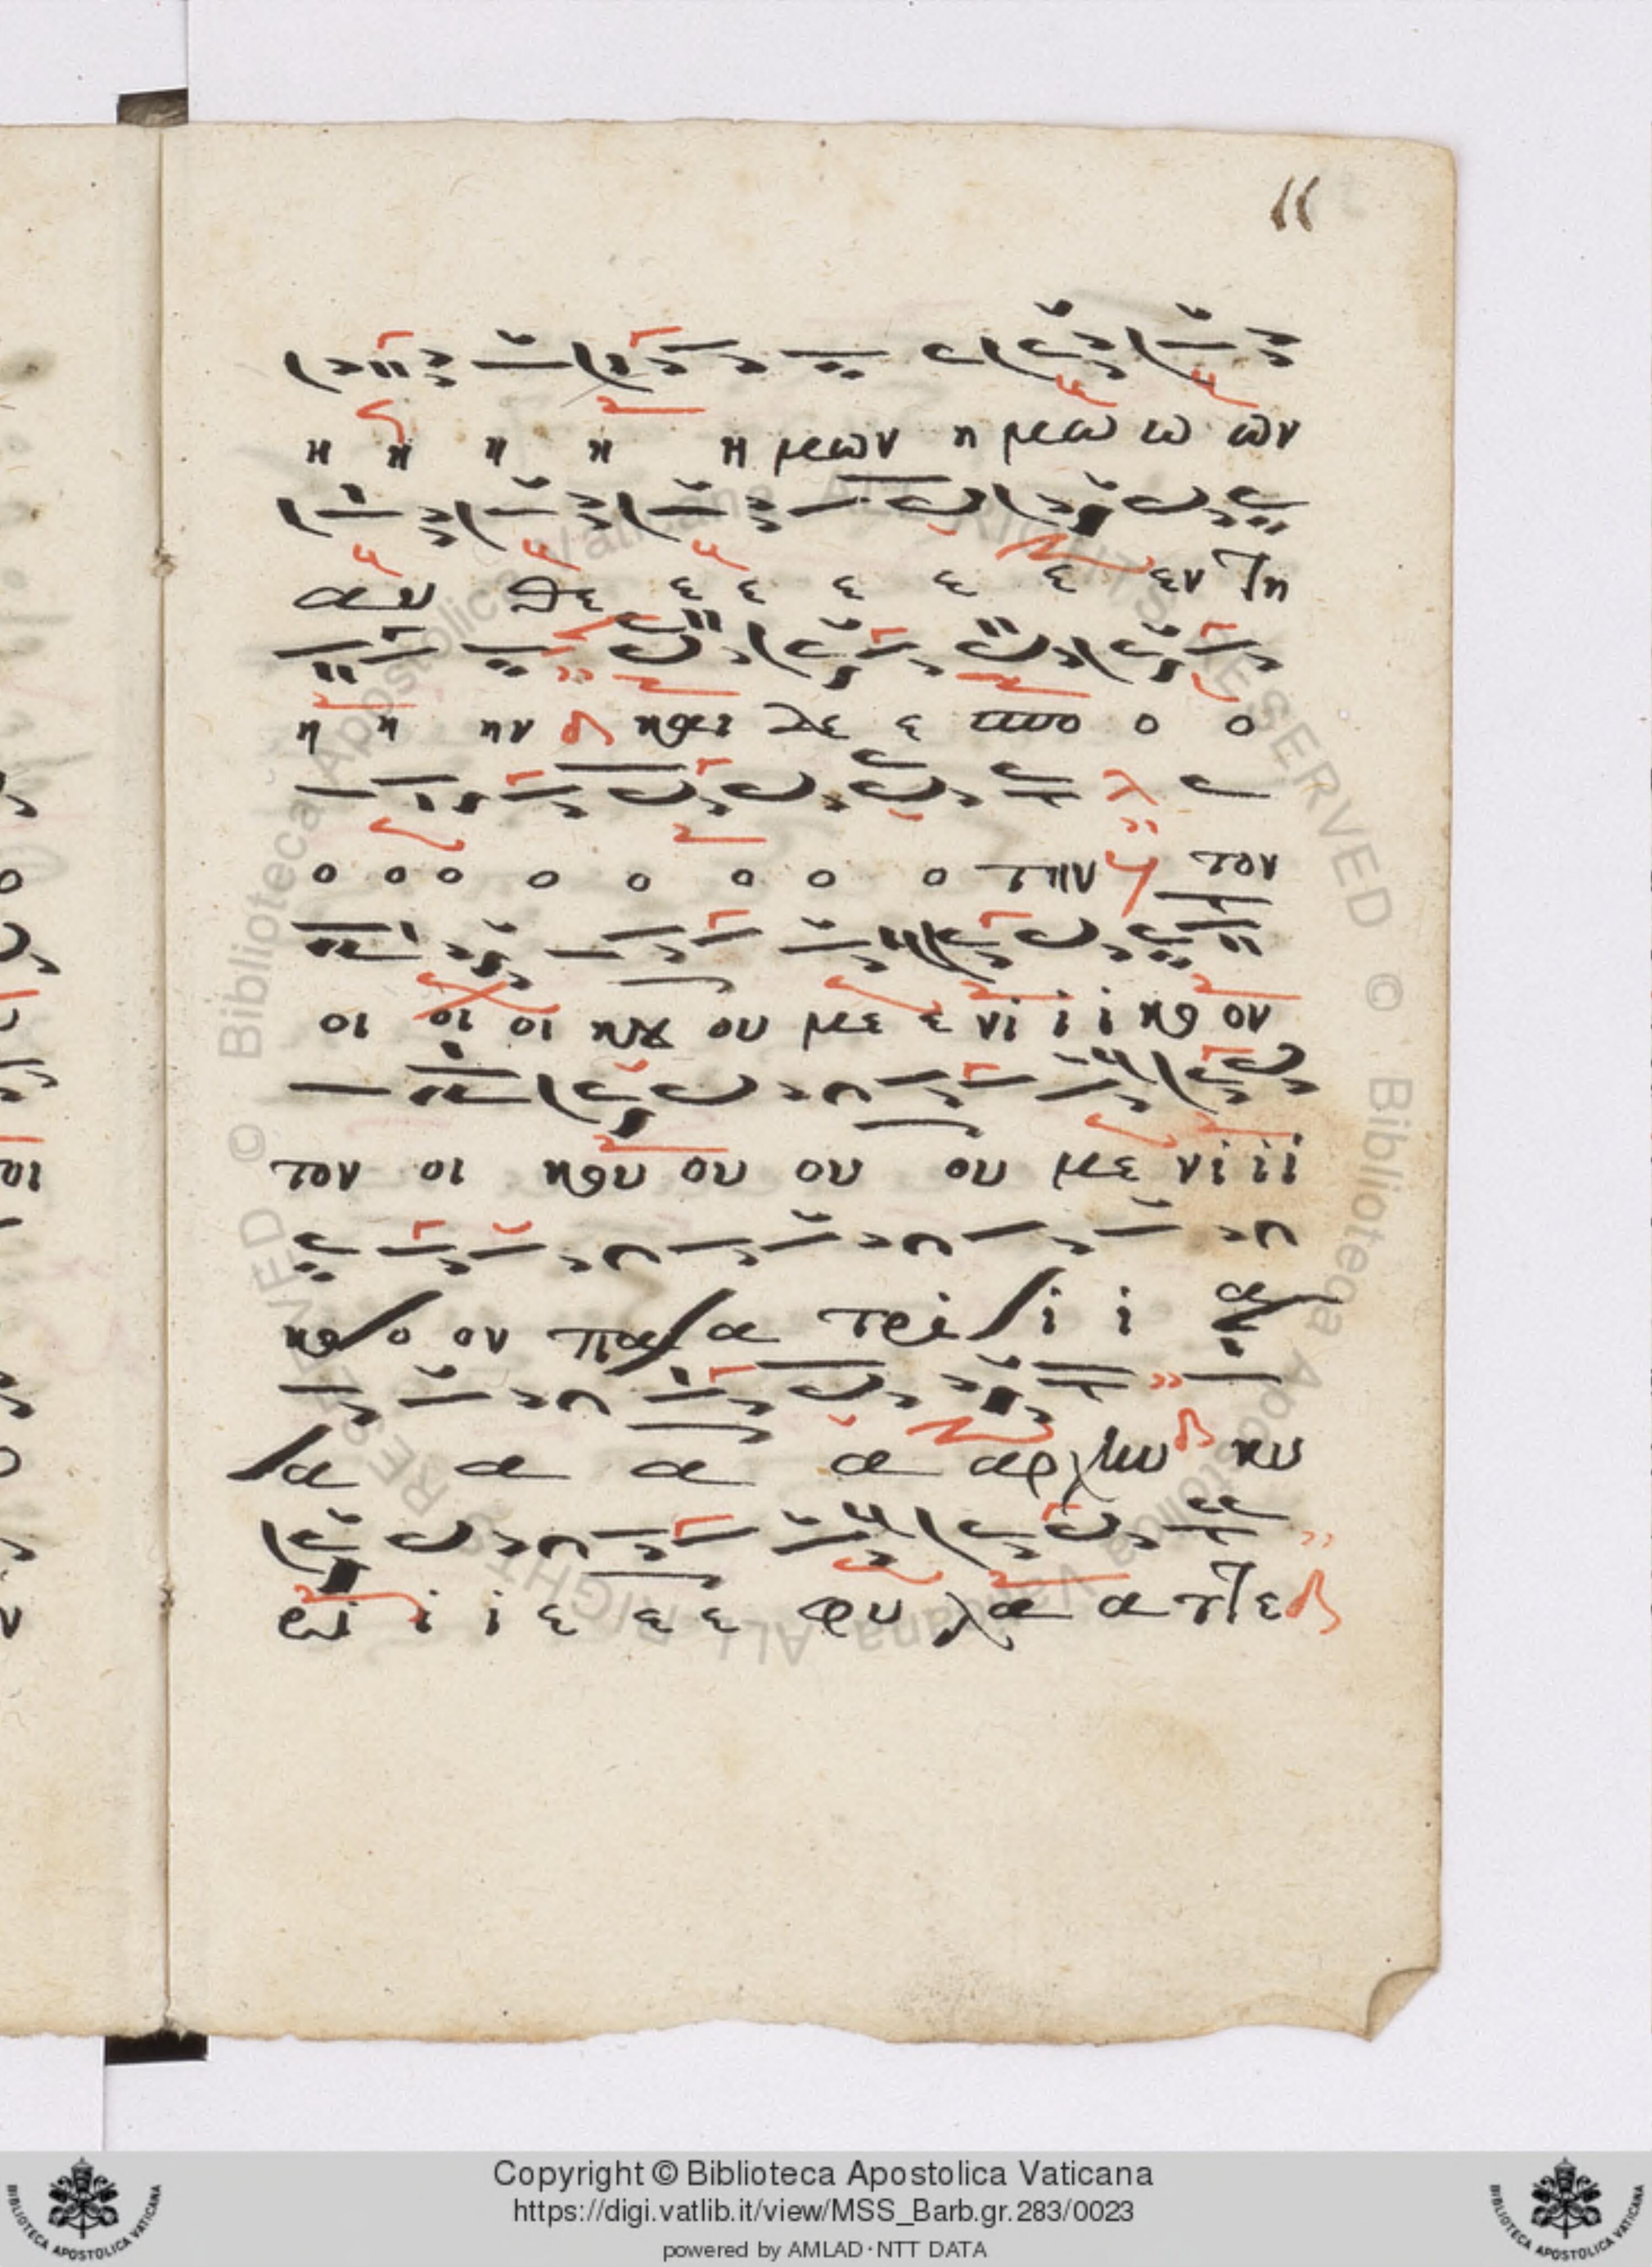 11
η η η η η μων η μω ω ων
αυ θε ε ε ε ε ε εν τη
η η ην και δε ε σπο ο ο
ο ο ο ο ο ο ο ο την τον
οι οι οι κου ου με ε νι ι ι κο ον
τον οι κου ου ου ου με νι ι ι
κο ο ον πα α τρι ι ι α
α α α α αρχην κυ
ρι ι ι ε ε ε φυ λα α ττε
Copyright © Biblioteca Apostolica Vaticana
https://digi.vatlib.it/view/MSS_Barb.gr.283/0023
powered by AMLAD·NTT DATA